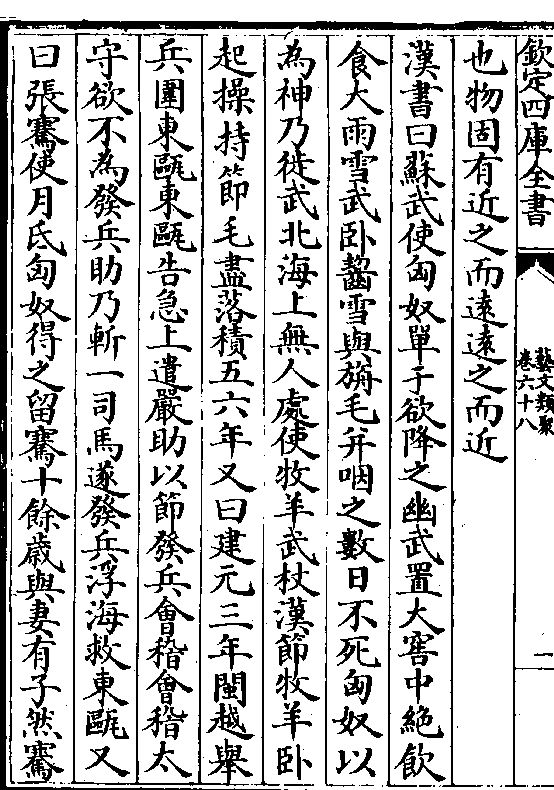 欽定四庫全書
藝文類聚
卷六十八
一
也物固有近之而遠遠之而近
漢書曰蘇武使匈奴單于欲降之幽武置大窖中絶飲
食天雨雪武卧齧雪與旃毛并咽之數日不死匈奴以
為神乃徙武北海上無人處使牧羊武杖漢節牧羊卧
起操持節毛盡落積五六年又曰建元三年閩越舉
兵圍東甌東甌告急上遣嚴助以節發兵會稽會稽太
守欲不為發兵助乃斬一司馬遂發兵浮海救東甌又
曰張騫使月氏匈奴得之留騫十餘歳與妻有子然騫